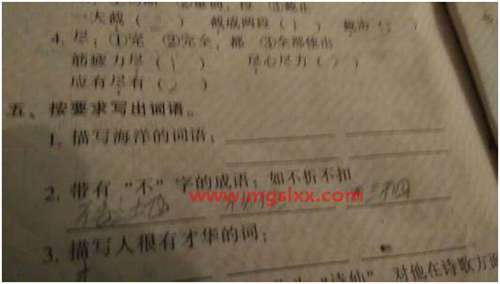 一大截（ ） 截成两段（1） 截
4. 尽：①完 ②完全，都 ③全部使出
筋疲力尽（1） 尽心尽力（2）
应有尽有（2）
五、按要求写出词语。
1. 描写海洋的词语：
2. 带有“不”字的成语：如不折不扣
www.mgslxx.com
3. 描写人很有才华的词：
“诗仙”，对他在诗歌方面